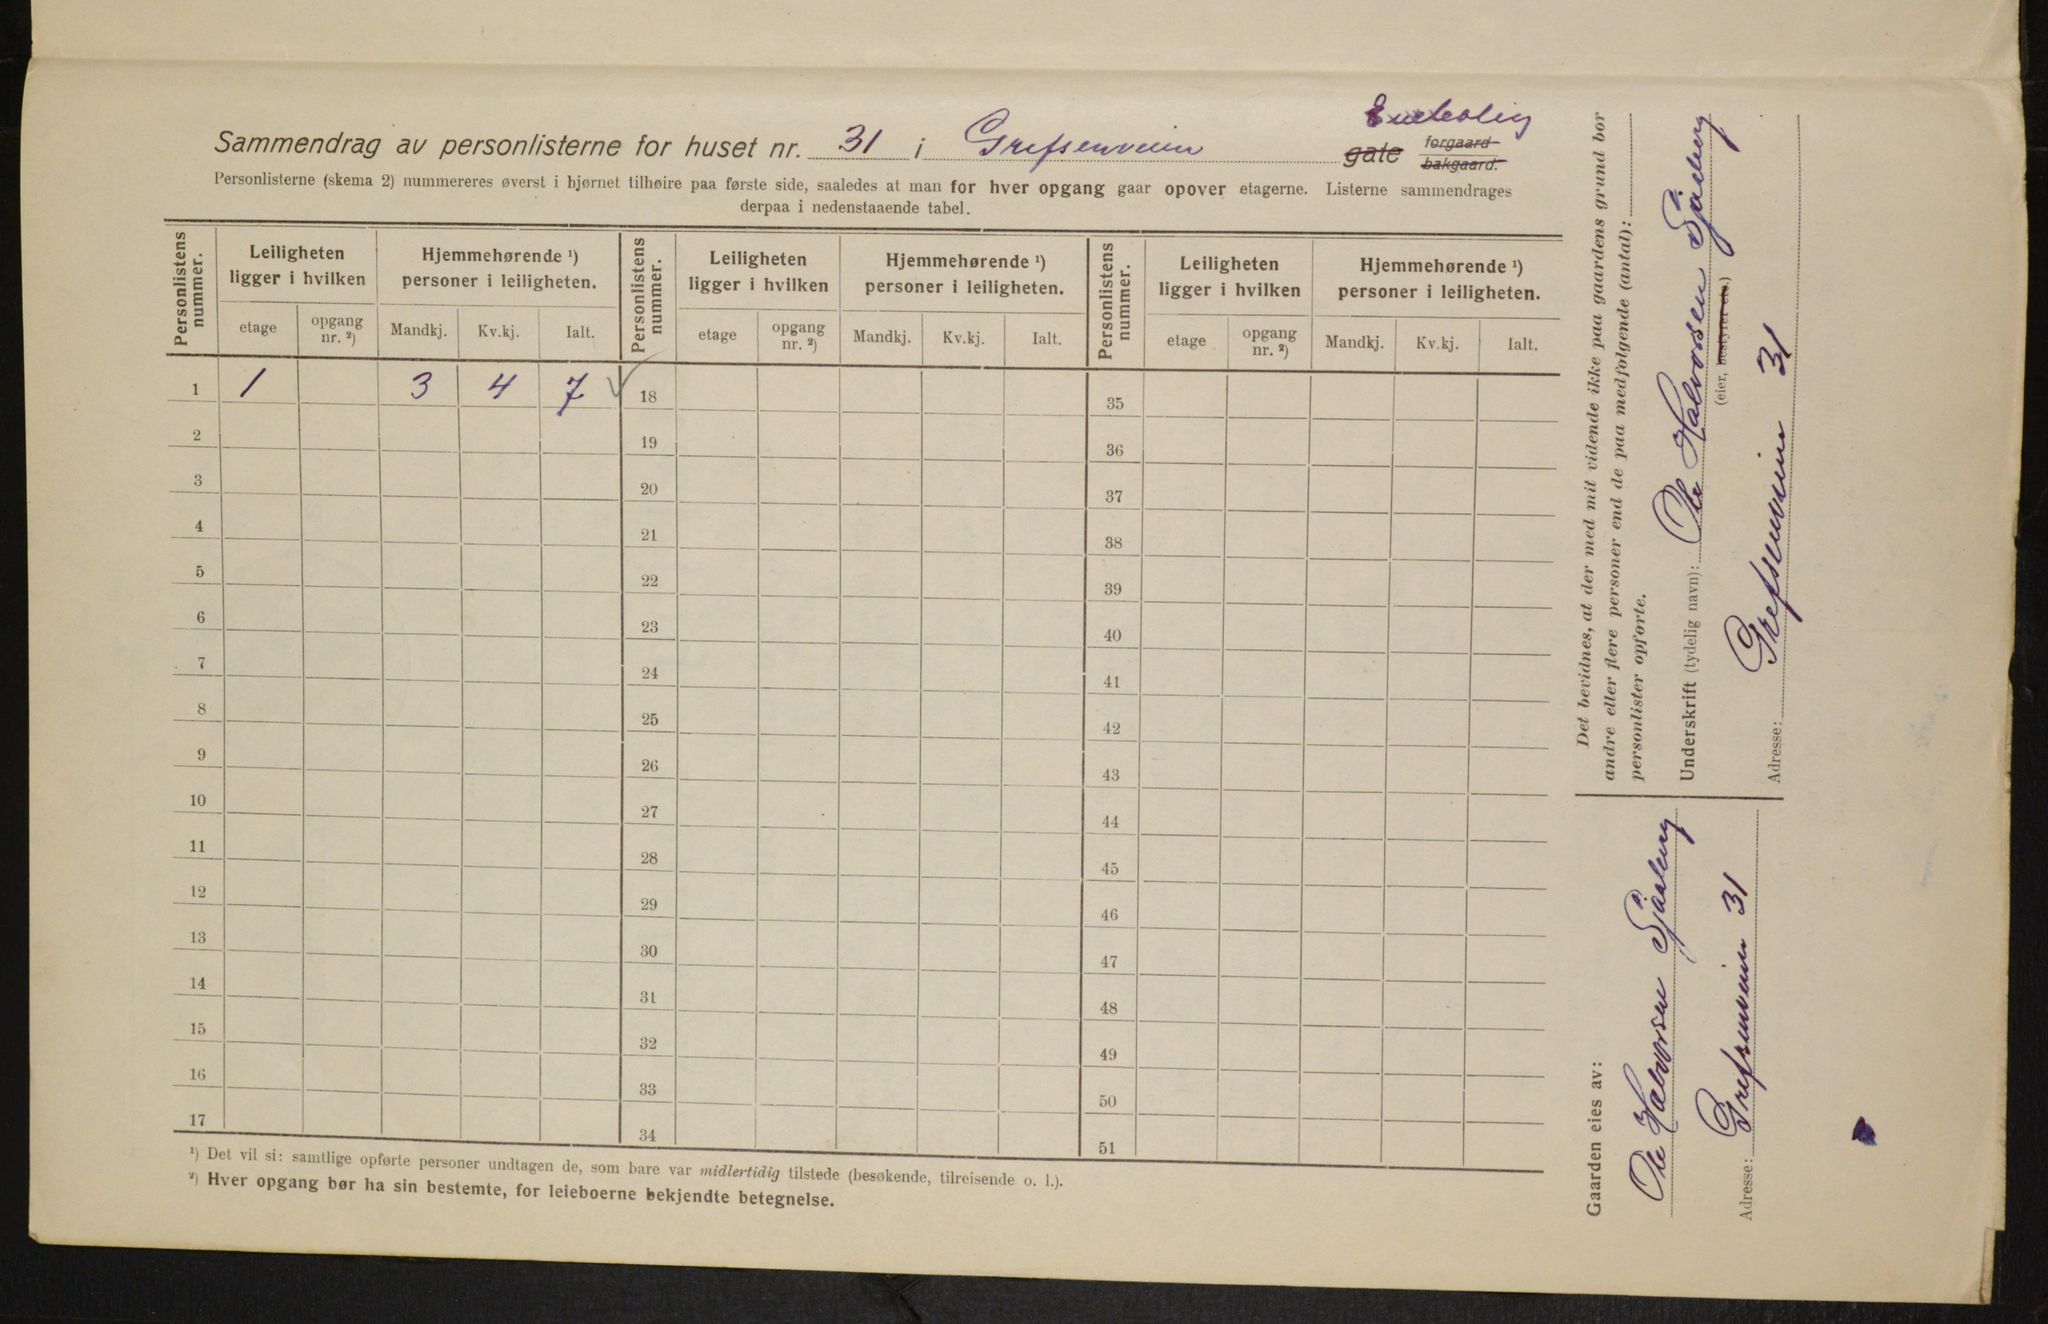 Enebolig
Sammendrag av personlisterne for huset nr. 31 i Grefsenveien gate forgaard bakgaard.
Personlisterne (skema 2) nummereres øverst i hjørnet tilhøire paa første side, saaledes at man for hver opgang gaar opover etagerne. Listerne sammendrages
derpaa i nedenstaaende tabel.
Personlistens nummer. Leiligheten ligger i hvilken Hjemmehørende ¹) personer i leiligheten. Personlistens nummer. Leiligheten ligger i hvilken Hjemmehørende ¹) personer i leiligheten. Personlistens nummer. Leiligheten ligger i hvilken Hjemmehørende ¹) personer i leiligheten.
etage opgang nr. ²) Mandkj. Kv.kj. Ialt. etage opgang nr. ²) Mandkj. Kv.kj. Ialt. etage opgang nr. ²) Mandkj. Kv.kj. Ialt.
1 1 3 4 7 18 35
2 19 36
3 20 37
4 21 38
5 22 39
6 23 40
7 24 41
8 25 42
9 26 43
10 27 44
11 28 45
12 29 46
13 30 47
14 31 48
15 32 49
16 33 50
17 34 51
¹) Det vil si: samtlige opførte personer undtagen de, som bare var midlertidig tilstede (besøkende, tilreisende o. l.).
²) Hver opgang bør ha sin bestemte, for leieboerne bekjendte betegnelse.
Det bevidnes, at der med mit vidende ikke paa gaardens grund bor
andre eller flere personer end de paa medfølgende (antal):
personlister opførte.
Underskrift (tydelig navn): Ole Halvorsen Sjåberg
(eier, bestyrer etc.)
Adresse: Grefsenveien 31
Gaarden eies av:
Ole Halvorsen Sjåberg
Adresse: Grefsenveien 31